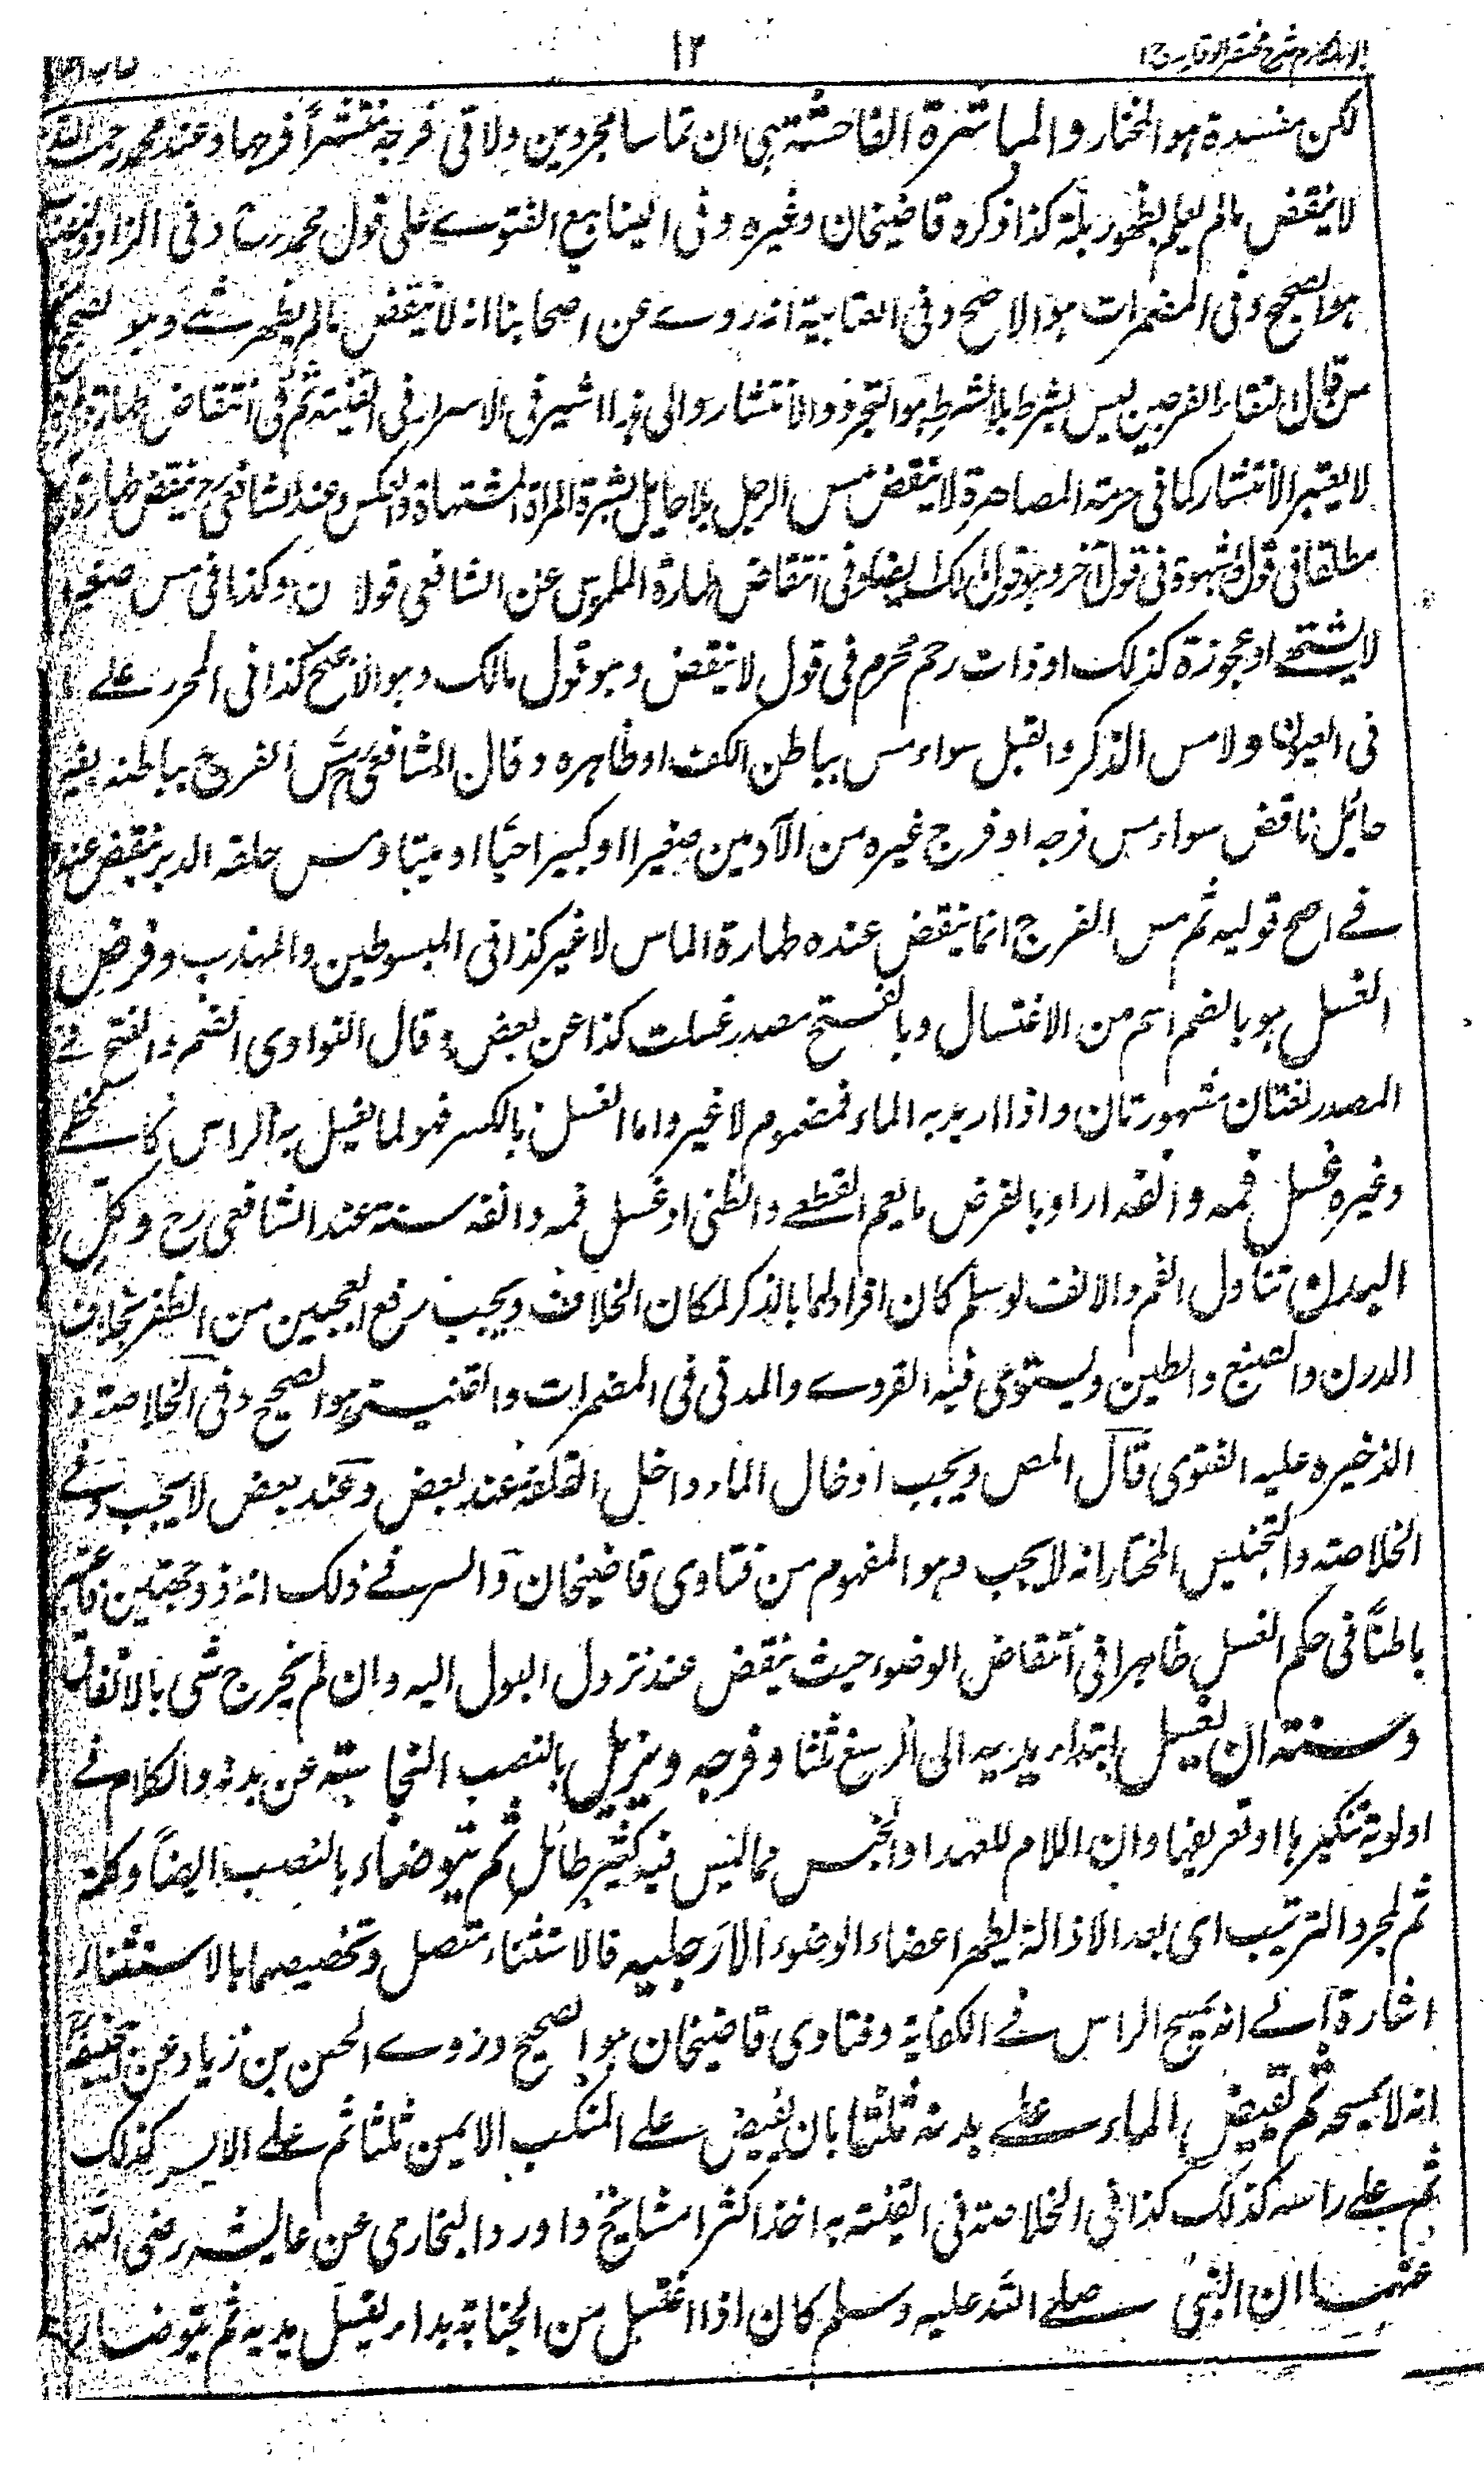 ابوالمكارم شرح مختصر الوقاية 13
١٢
كتاب الطهارة
لكن مفسدة هو المختار والمباشرة الفاحشة هي ان تماسا مجردين ولاقى فرجه منتشرا فرجها وعند محمد رحمه الله
لا ينقض ما لم يعلم بظهور بلة كذا ذكره قاضيخان وغيره وفى الينابيع الفتوے على قول محمد رح وفى الزاد
هو الصحيح وفى المضمرات هو الاصح وفى العتابية انه روے عن اصحابنا انه لا ينقض ما لم يظهر شے وهو الصحيح
من قال لا التقاء الفرجين ليس بشرط بل الشرط هو التجرد والانتشار والى هذا اشير فى الاسرار فى القنية ثم فى انتقاض طهارة
لا يعتبر الانتشار كما فى حرمة المصاهرة لا ينقض مس الرجل بلا حايل بشرة المراة المشتهاة والعكس وعند الشافعى رح ينقض طهارة
مطلقا فى قول وبشهوة فى قول آخر وهو قول مالك ايضا وفى انتقاض طهارة الملموس عن الشافعى قولان وكذا فى مس صغيرة
لا تشتهى او عجوزة كذلك او ذات رحم محرم فى قول لا ينقض وهو قول مالك وهو الاصح كذا فى المحرر على
فى العيون ولا مس الذكر والقبل سواء مس بباطن الكف او ظاهره وقال الشافعى رح مس الفرج بباطنه بغير
حائل ناقض سواء مس فرجه او فرج غيره من الآدمين صغيرا او كبيرا حيا او ميتا ومس حلقه الدبر ينقض عنده
فے اصح قوليه ثم مس الفرج انما ينقض عنده طهارة الماس لا غير كذا فى المبسوطين والمهذب وفرض
الغسل هو بالضم اسم من الاغتسال وبالفتح مصدر غسلت كذا عن بعض وقال النواوى الضم والفتح فے
المصدر لغتان مشهورتان واذا اريد به الماء فمضموم لا غير واما الغسل بالكسر فهو لما يغسل به الراس كالخطمے
وغيره غسل فمه وانفه اراد بالفرض ما يعم القطعے والظنى اذ غسل فمه وانفه سنة عند الشافعى رح وكل
البدن تناول الفم والانف لو سلم كان افرادهما بالذكر لمكان الخلاف ويجب رفع العجين من الظفر بخلاف
الدرن والصبغ والطين ويستوى فيه القروے والمدنى فى المضمرات والقنية هو الصحيح وفى الخلاصة و
الذخيرة عليه الفتوى قال المص ويجب ادخال الماء داخل القلفة عند بعض وعند بعض لا يجب وفے
الخلاصة والتجنيس المختار انه لا يجب وهو المفهوم من فتاوى قاضيخان والسر فے ذلك انه ذو جهتين فاعتبر
باطنا فى حكم الغسل ظاهرا فى انتقاض الوضوء حيث ينقض عند نزول البول اليه وان لم يخرج شى بالاتفاق
وسنته ان يغسل ابتداء يديه الى الرسغ ثلثا وفرجه ويزيل بالنصب النجاسة عن بدنه والكلام فے
اولوية تنكيرها او تعريفها وان اللام للعهد او الجنس مما ليس فيه كثير طائل ثم يتوضاء بالنصب ايضا وكلمة
ثم لمجرد الترتيب اى بعد الازالة يطهر اعضاء الوضوء الا رجليه فالاستثناء متصل وتخصيصهما بالاستثناء
اشارة الے انه يمسح الراس فے الكفاية وفتاوى قاضيخان هو الصحيح وروے الحسن بن زياد عن ابى حنيفة
انه لا يمسحه ثم يفيض الماء على بدنه ثلثا بان يفيض على المنكب الايمن ثلثا ثم على الايسر كذلك
ثم على راسه كذلك كذا فى الخلاصة فى القنية به اخذ اكثر المشايخ واورد البخارى عن عائشة رضى الله
عنها ان النبى صلے الله عليه وسلم كان اذا اغتسل من الجنابة بدا بغسل يديه ثم يتوضا